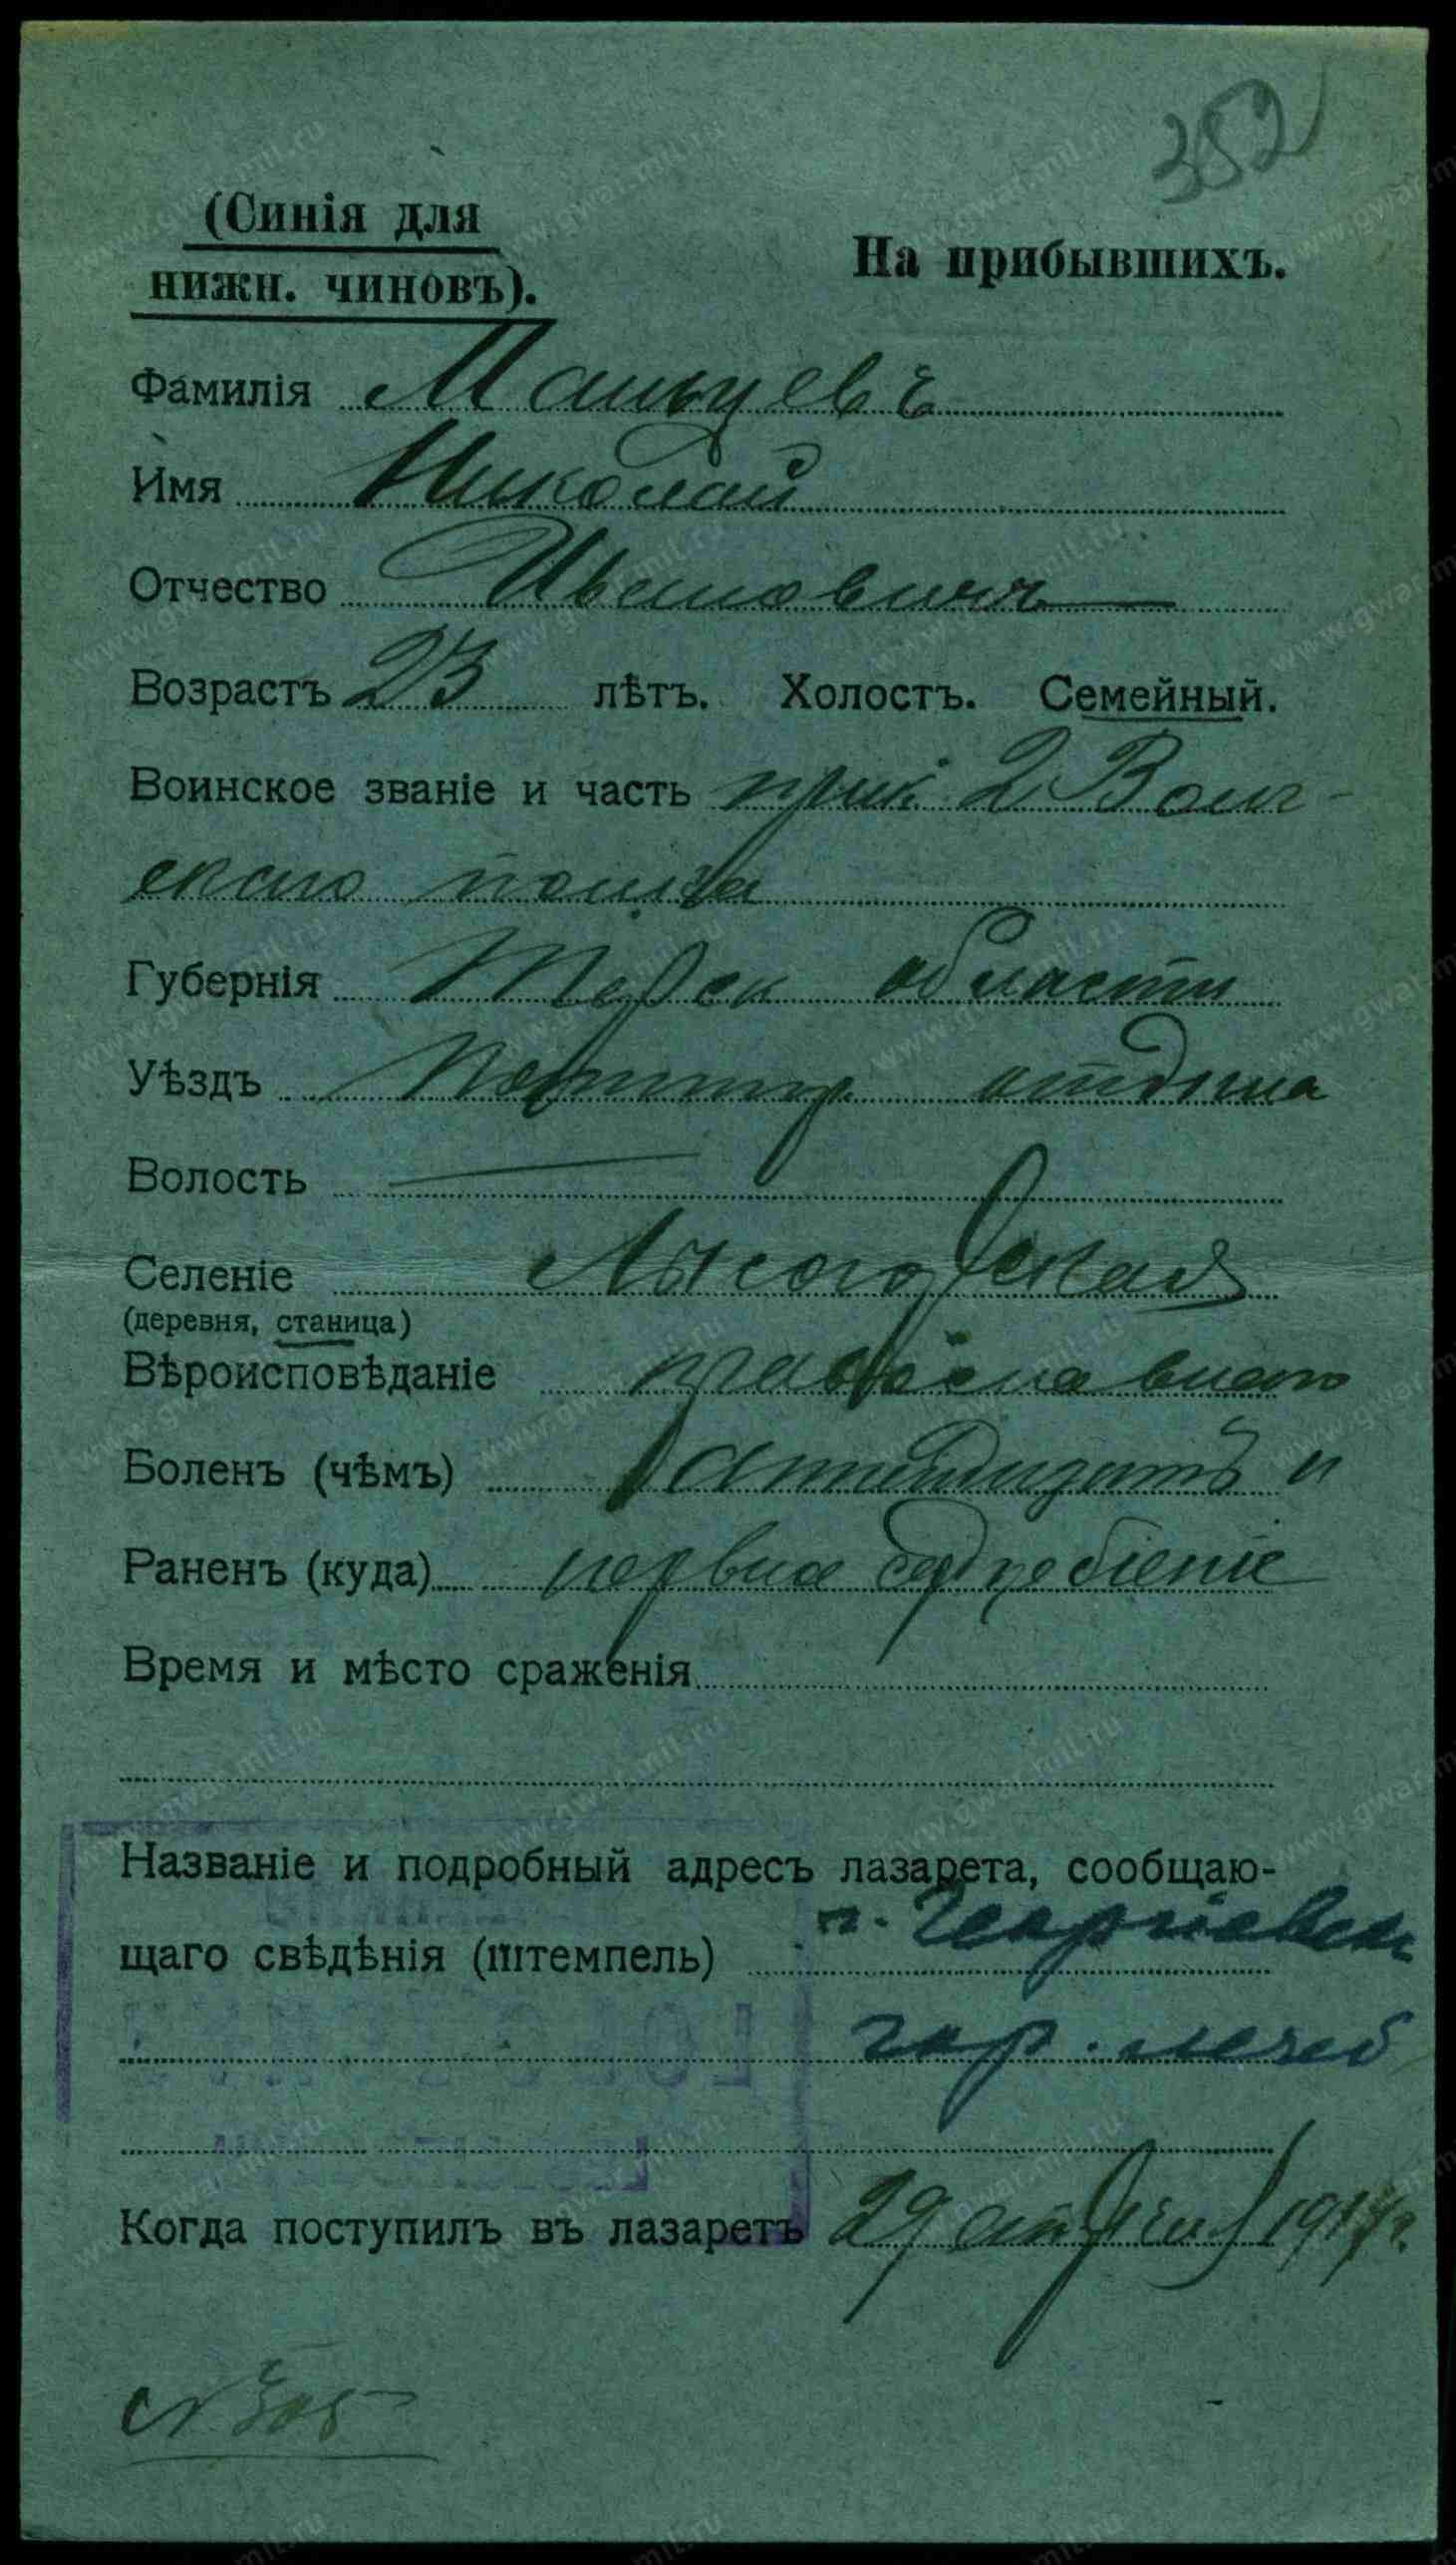 352
(Синія для
нижн. чиновъ).
На прибывшихъ.
Фамилія Мальцевъ
Имя Николай
Отчество Ивановичъ
Возрастъ 23 лѣтъ. Холостъ. Семейный.
Воинское званіе и часть 2 Волг-
скаго полка
Губернія Терск области
Уѣздъ отдѣла
Волость —
Селеніе Лысогорская
(деревня, станица)
Вѣроисповѣданіе православнаго
Боленъ (чѣмъ) и
Раненъ (куда) нервное сердцебіеніе
Время и мѣсто сраженія
Названіе и подробный адресъ лазарета, сообщаю-
щаго свѣдѣнія (штемпель) г. Георгіевск
гор. лечеб
Когда поступилъ въ лазаретъ 29 апрѣля 1917 г.
№ 305